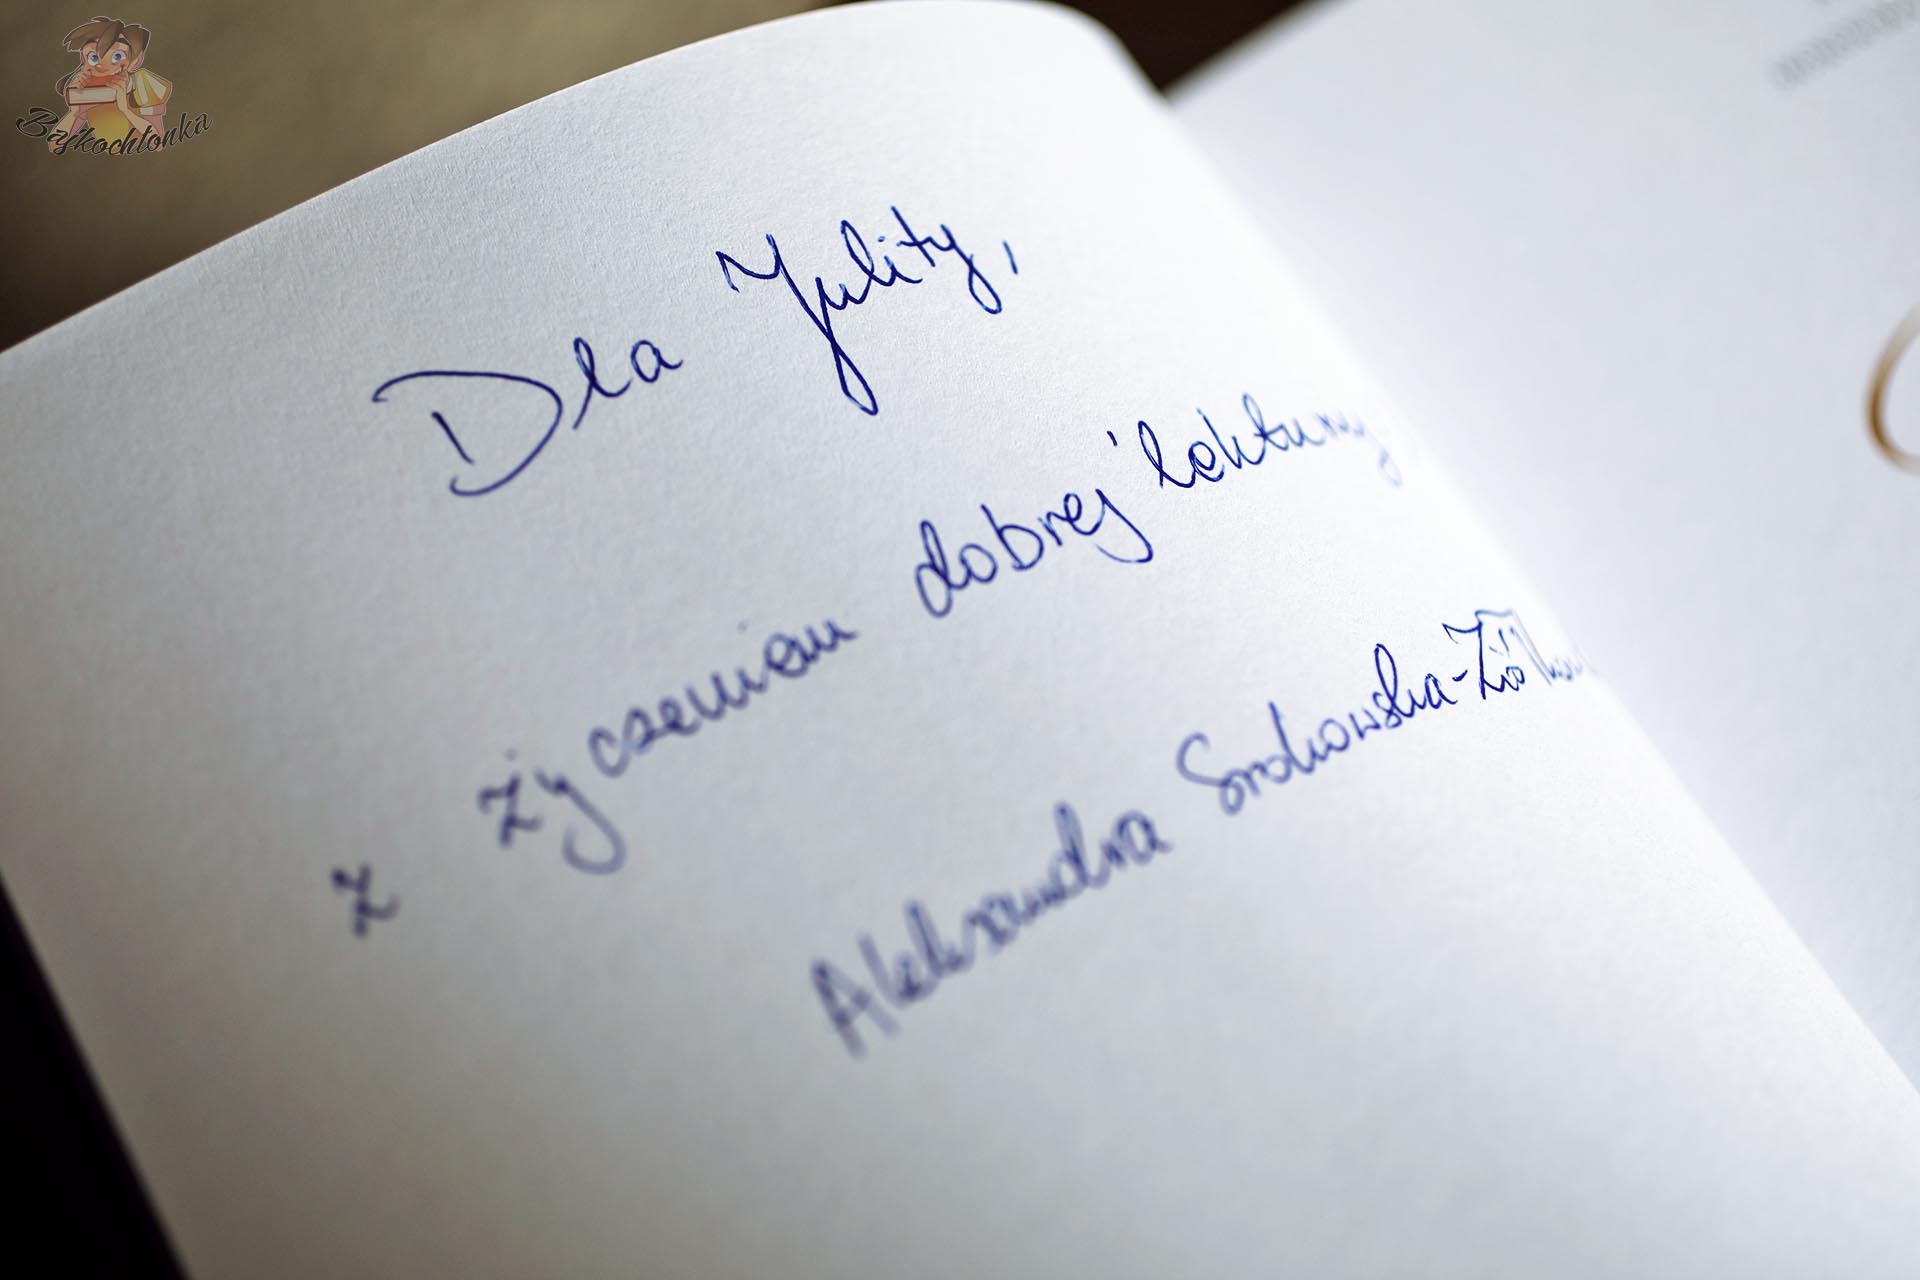 Bajkochłonka
Dla Julity,
z życzeniem dobrej lektury
Aleksandra Sorokowska-